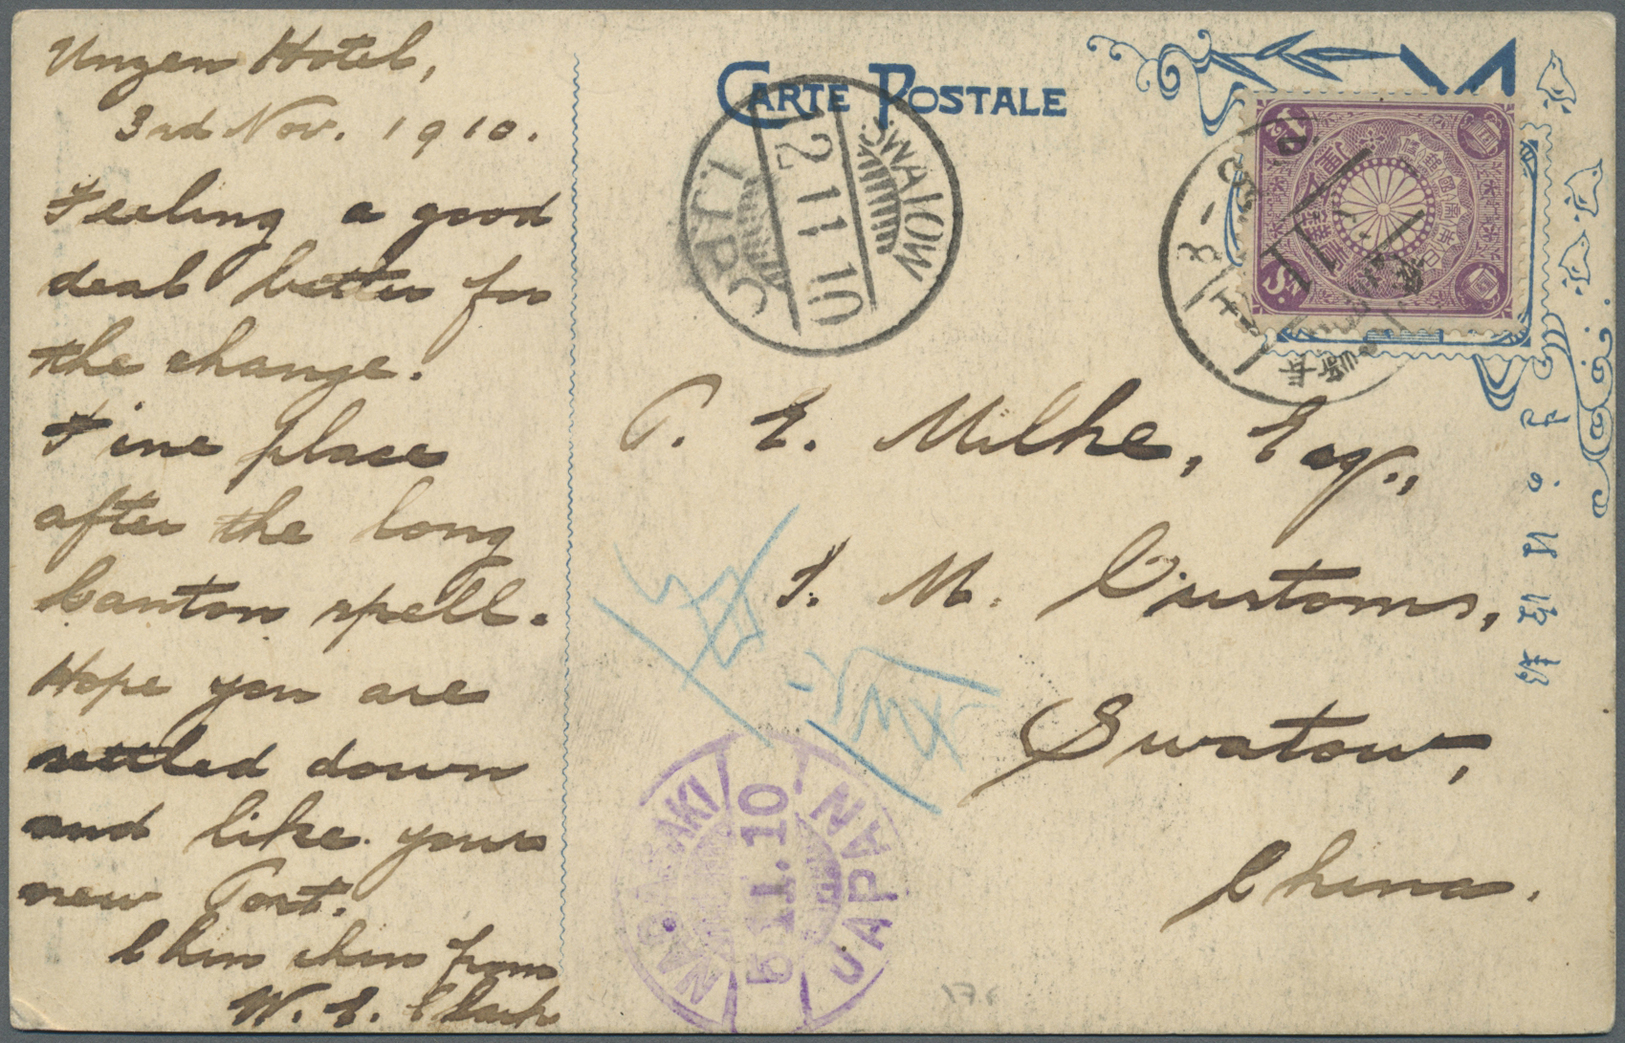 Unzen Hotel,
3rd Nov. 1910.
Feeling a good
deal better for
the change.
Fine place
after the long
Canton spell.
Hope you are
settled down
and like your
new Port.
Chin chin from
W. E. Clark
CARTE POSTALE
SWATOW
12 11 10
I.J.P.O.
1½
Sn.
P. E. Milhe, Esq.,
I. M. Customs,
Swatow,
China.
NAGASAKI
5.11.10
JAPAN